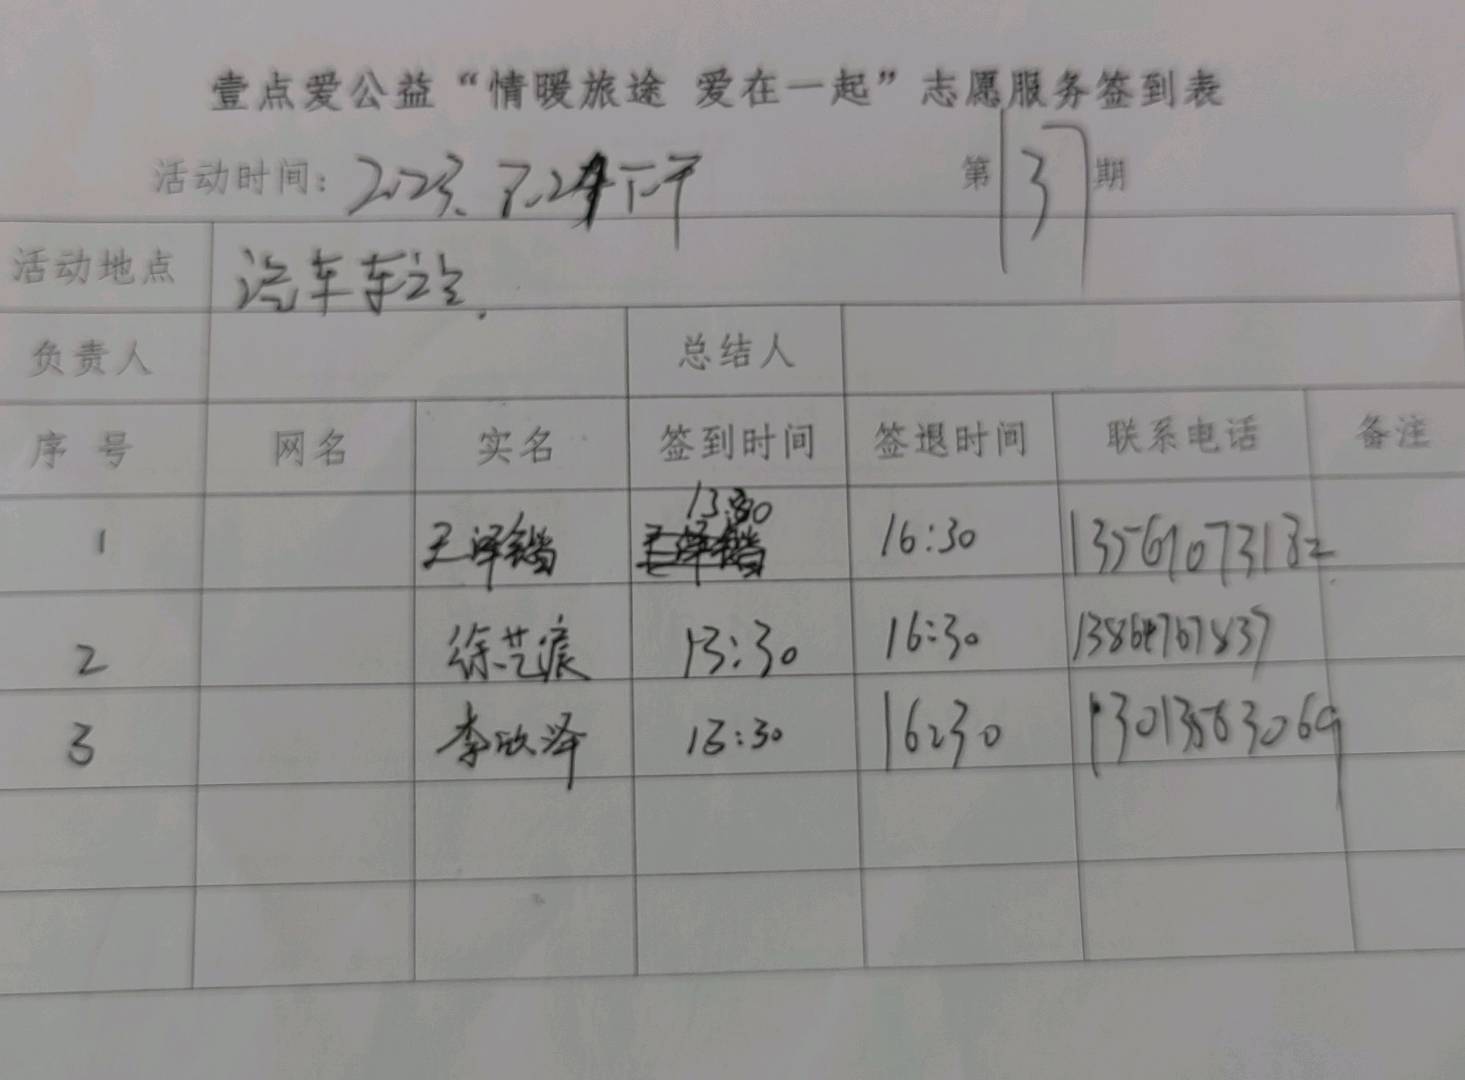 壹点爱公益“情暖旅途 爱在一起”志愿服务签到表
活动时间: 2023.7.2 下午 第137期
活动地点 汽车车站.
负责人 总结人
序号 网名 实名 签到时间 签退时间 联系电话 备注
1 王泽锴 13:30 16:30 13561073182
2 徐艺宸 13:30 16:30 13864767837
3 李欣泽 13:30 16:30 13013583069